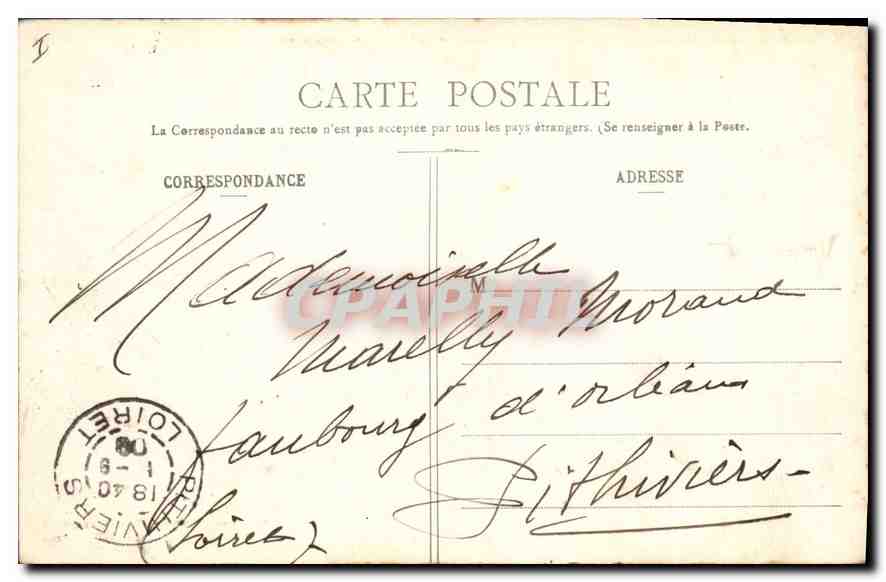 I
CARTE POSTALE
La Correspondance au recto n'est pas acceptée par tous les pays étrangers. (Se renseigner à la Poste.
CORRESPONDANCE
ADRESSE
M
Mademoiselle
Marelly Morand
faubourg d'orléans
Pithiviers
(Loiret)
CPAPHIL
PITHIVIERS
LOIRET
18 40
1 - 9
08